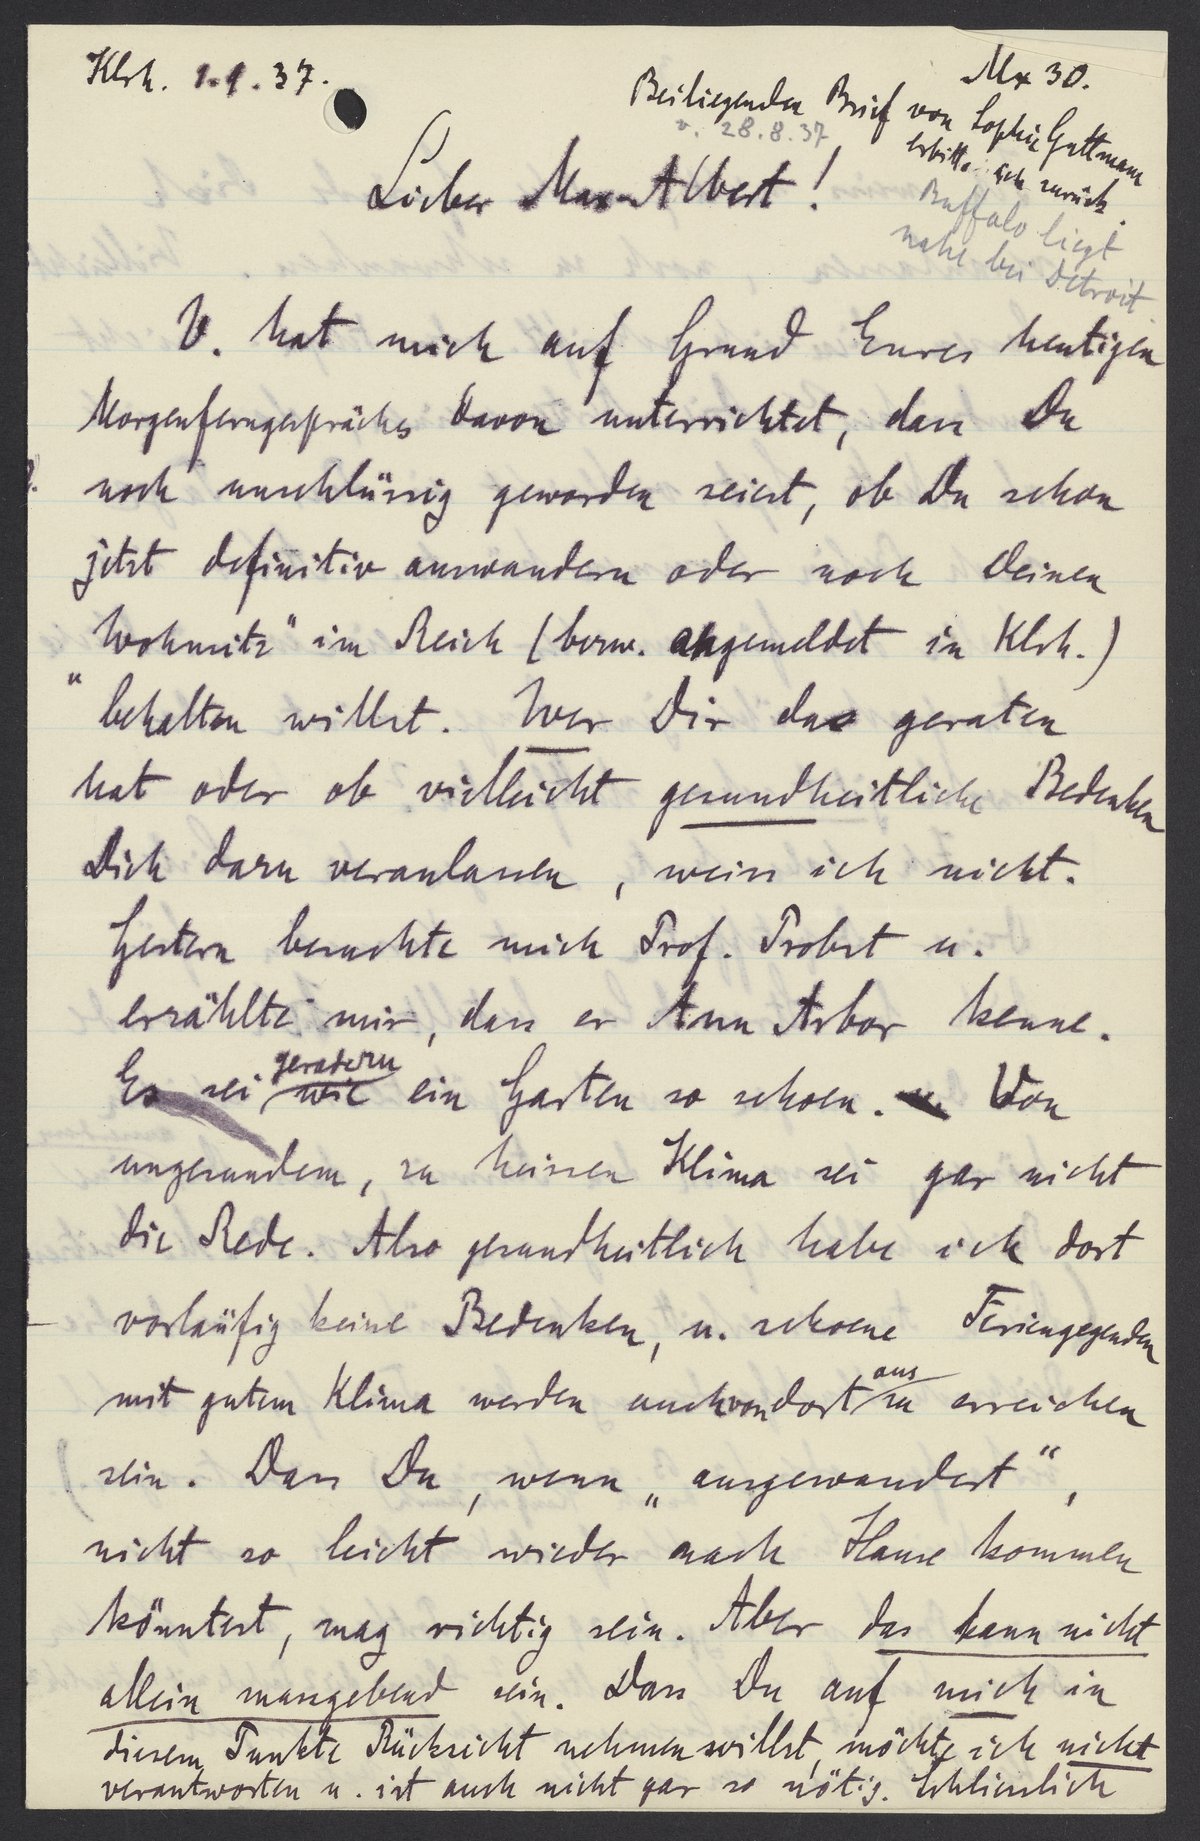 Klrh. 1.9.37.
Mx 30.
Beiliegenden Brief von Sophie Guttmann
v. 28.8.37
erbitte ich zurück.
Buffalo liegt
nahe bei Detroit.
Lieber Max-Albert!
V. hat mich auf Grund Eures heutigen
Morgenferngesprächs davon unterrichtet, dass Du
noch unschlüssig geworden seiest, ob Du schon
jetzt definitiv auswandern oder noch Deinen
"Wohnsitz" im Reich (bezw. angemeldet in Klrh.)
behalten willst. Wer Dir das geraten
hat oder ob vielleicht gesundheitliche Bedenken
Dich dazu veranlassen, weiss ich nicht.
Gestern besuchte mich Prof. Probst u.
erzählte mir, dass er Ann Arbor kenne.
Es sei geradezu wie ein Garten so schoen. Von
ungesundem, zu heissen Klima sei gar nicht
die Rede. Also gesundheitlich habe ich dort
vorläufig keine Bedenken, u. schoene Feriengegenden
mit gutem Klima werden auch von dort aus zu erreichen
sein. Dass Du, wenn „ausgewandert",
nicht so leicht wieder nach Hause kommen
könntest, mag richtig sein. Aber das kann nicht
allein massgebend sein. Dass Du auf mich in
diesem Punkte Rücksicht nehmen willst, möchte ich nicht
verantworten u. ist auch nicht gar so nötig. Schliesslich